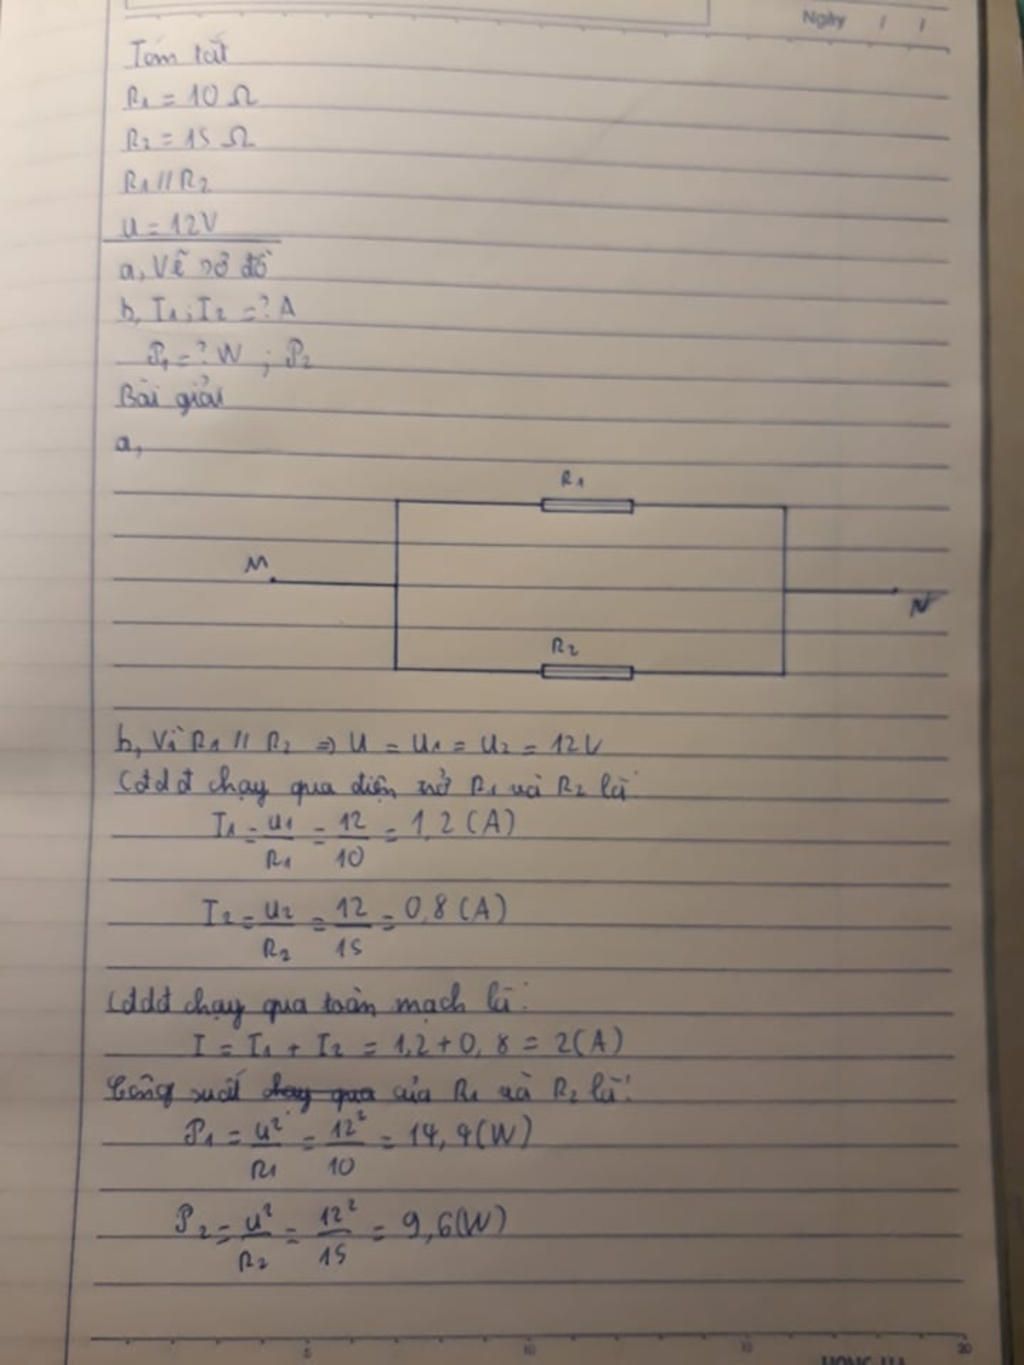 Ngày / /
Tóm tắt
R1 = 10 Ω
R2 = 15 Ω
R1 // R2
U = 12V
a, Vẽ sơ đồ
b, I1 ; I2 = ? A
P1 = ? W ; P2
Bài giải
a,
R1
M
N
R2
b, Vì R1 // R2 => U = U1 = U2 = 12V
Cđdđ chạy qua điện trở R1 và R2 là:
I1 = U1/R1 = 12/10 = 1,2 (A)
I2 = U2/R2 = 12/15 = 0,8 (A)
Cđdđ chạy qua toàn mạch là:
I = I1 + I2 = 1,2 + 0,8 = 2 (A)
Công suất chạy qua của R1 và R2 là:
P1 = U²/R1 = 12²/10 = 14,4 (W)
P2 = U²/R2 = 12²/15 = 9,6 (W)
5 10 15 20